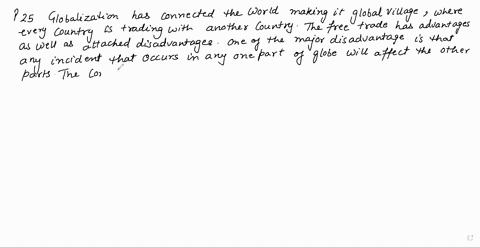 P25 Globalization has connected the World making it global village, where
every Country is trading with another Country. The free trade has advantages
as well as attached disadvantages. One of the major disadvantage is that
any incident that occurs in any one part of globe will affect the other
parts. The Cor